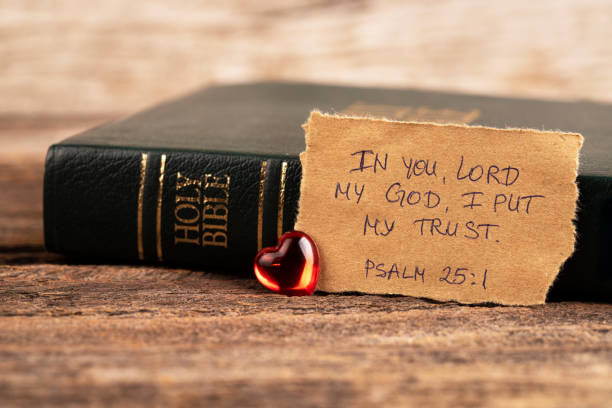 HOLY
BIBLE
IN YOU, LORD
MY GOD, I PUT
MY TRUST.
PSALM 25:1